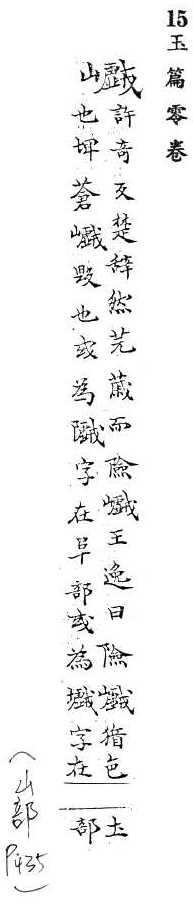 15玉篇零卷
巇
許奇反楚辭然芜薉而險巇王逸曰險巇猶色
也埤蒼巇毀也或為字在阜部或為字在
土
部
(山部 P435)